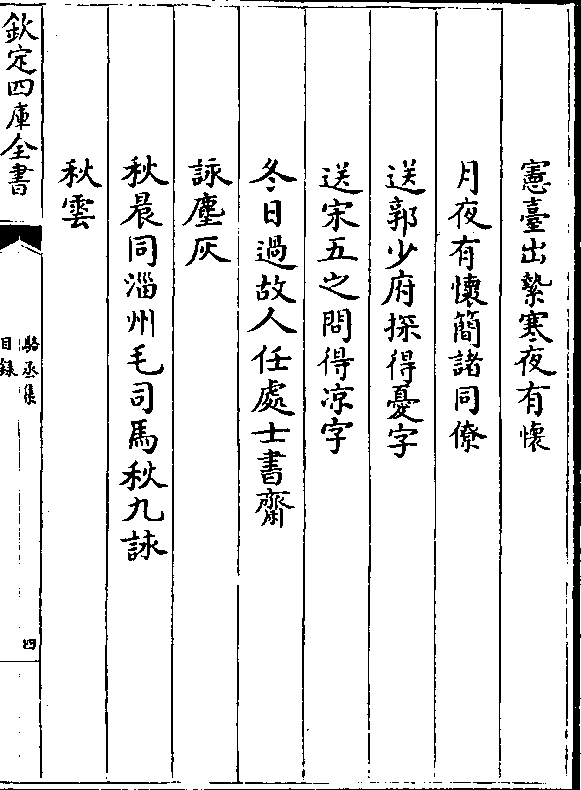 憲臺出縶寒夜有懷
月夜有懷簡諸同僚
送郭少府探得憂字
送宋五之問得凉字
冬日過故人任處士書齋
詠塵灰
秋晨同淄州毛司馬秋九詠
秋雲
欽定四庫全書
駱丞集
目錄
四